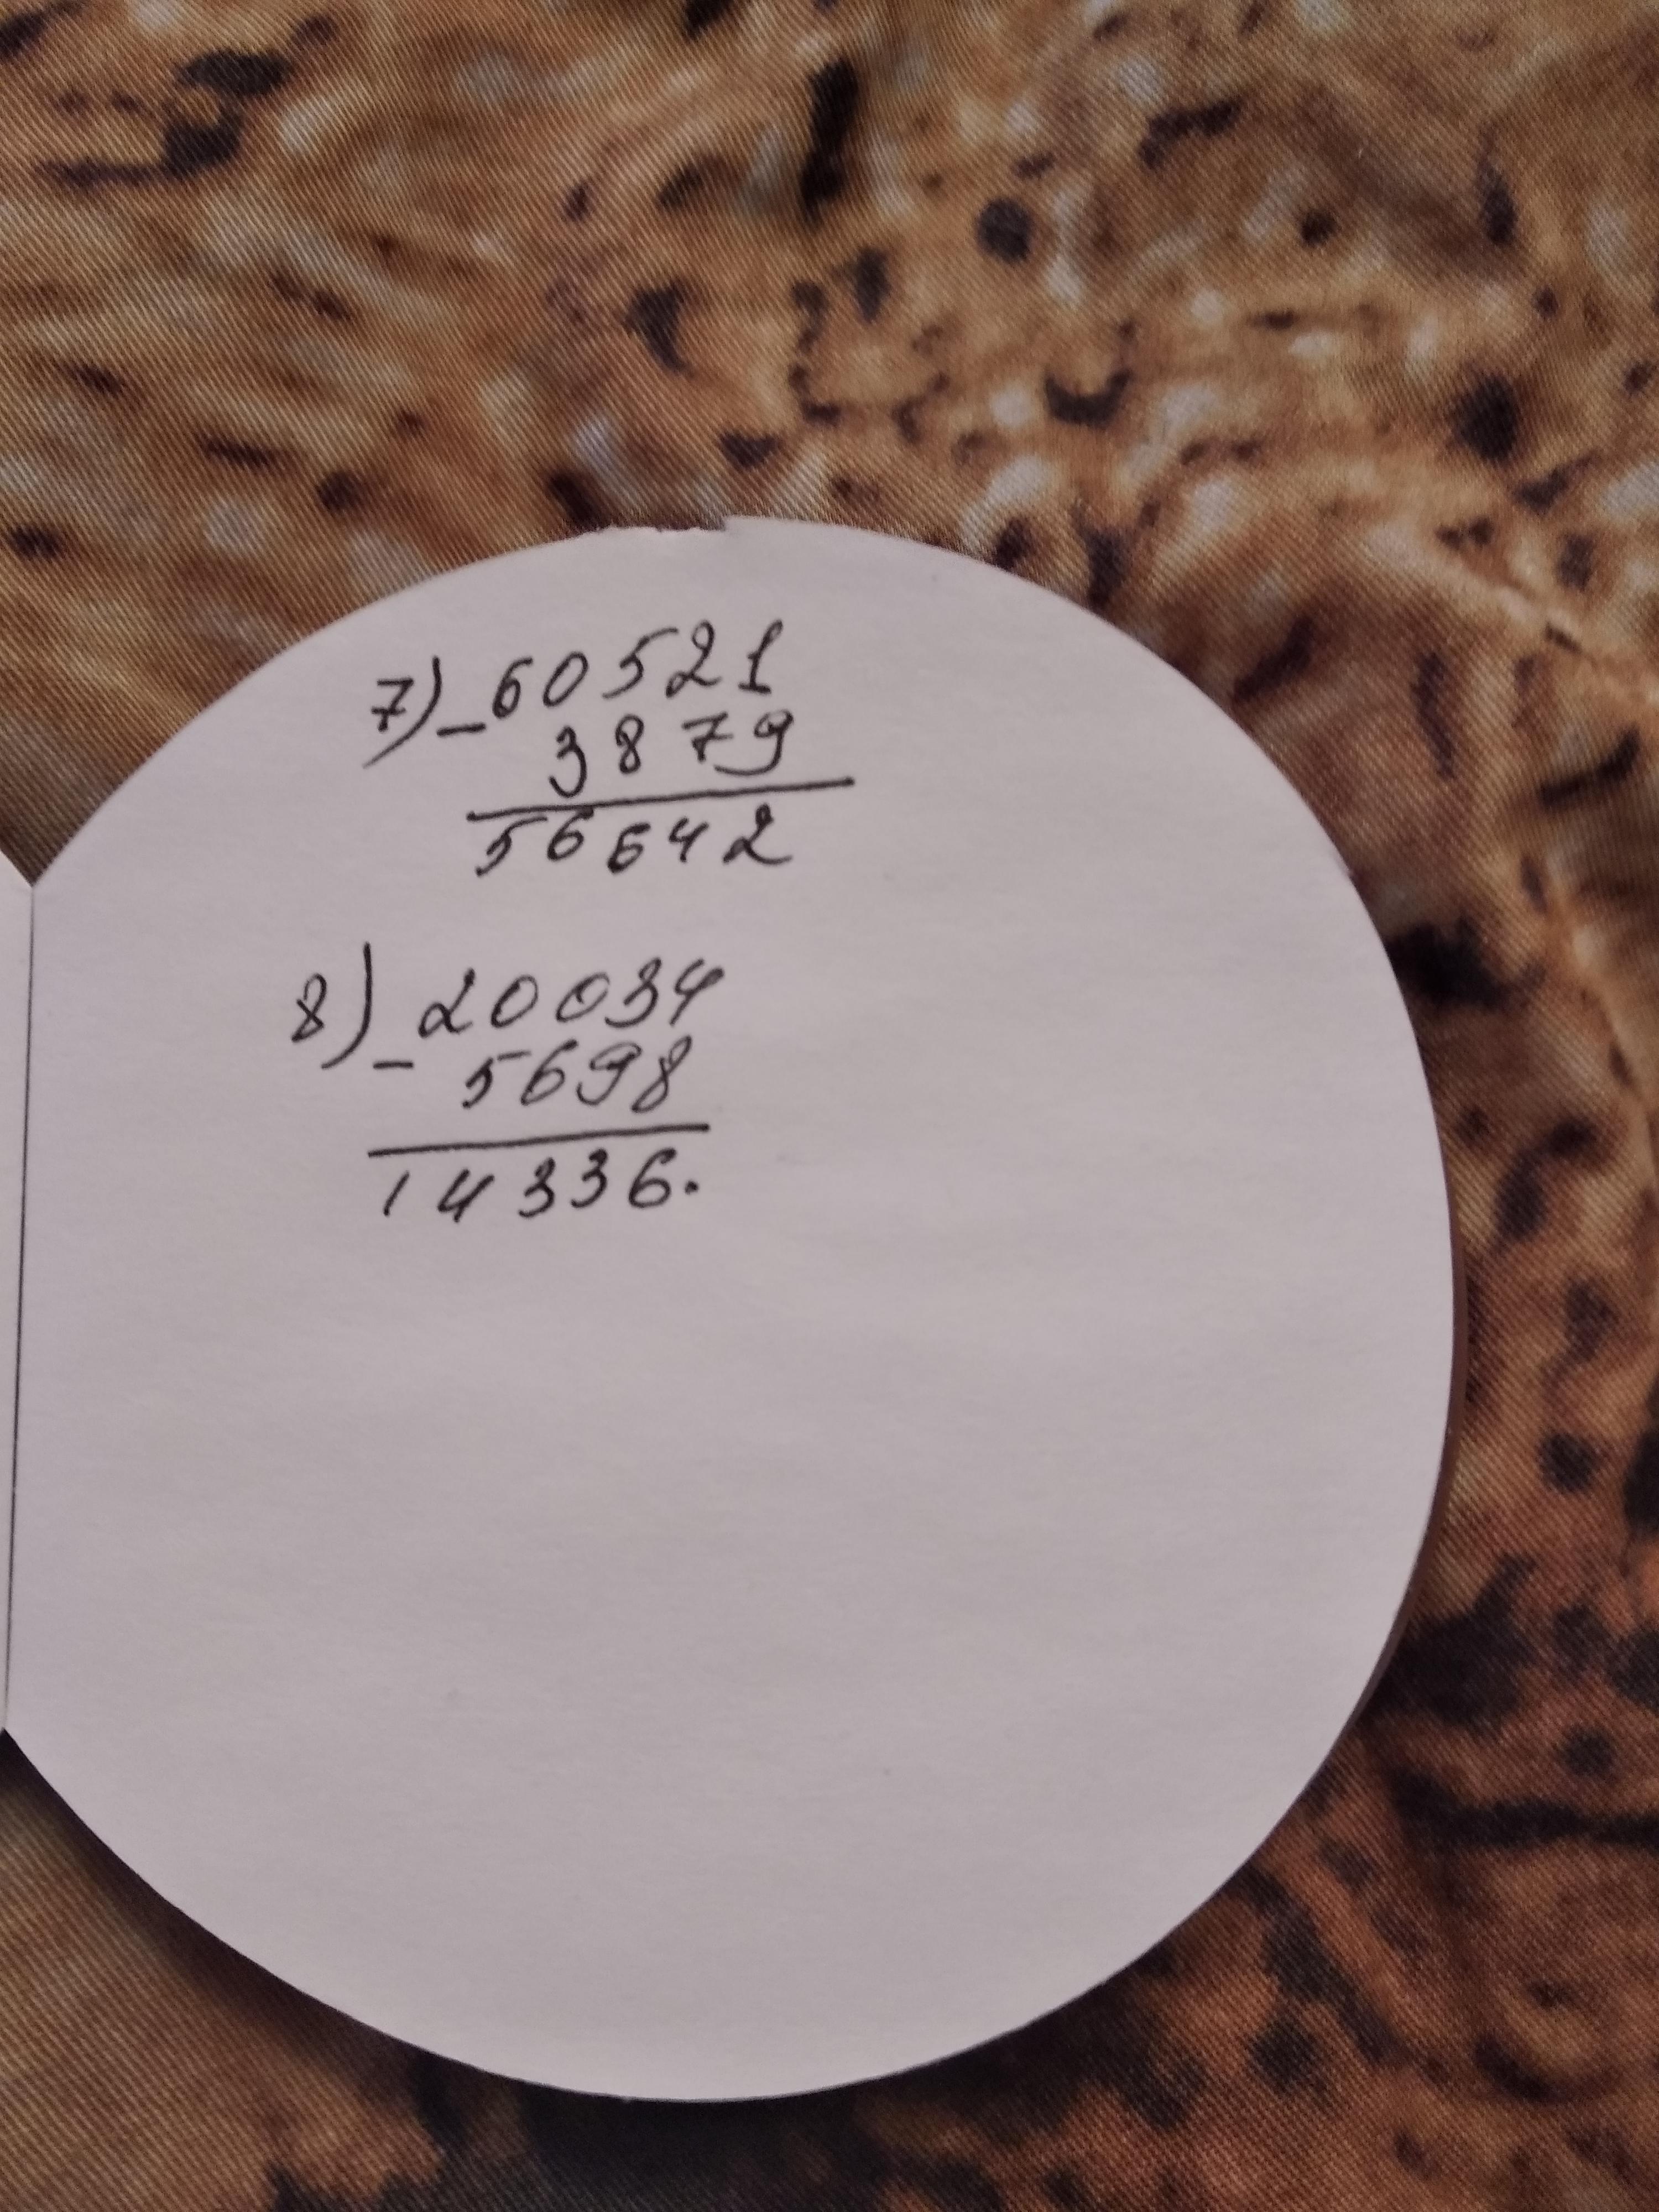 7) - 60521
3879
56642
8) - 20034
5698
14336.